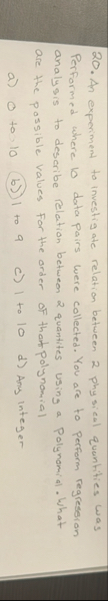 20. An experiment to investigate relation between 2 physical quantities was
Performed where 10 data pairs were collected. You are to perform regression
analysis to describe relation between 2 quantites using a polynomial. What
are the possible values for the order of that polynomial
a) 0 to 10 b) 1 to 9 c) 1 to 10 d) Any integer